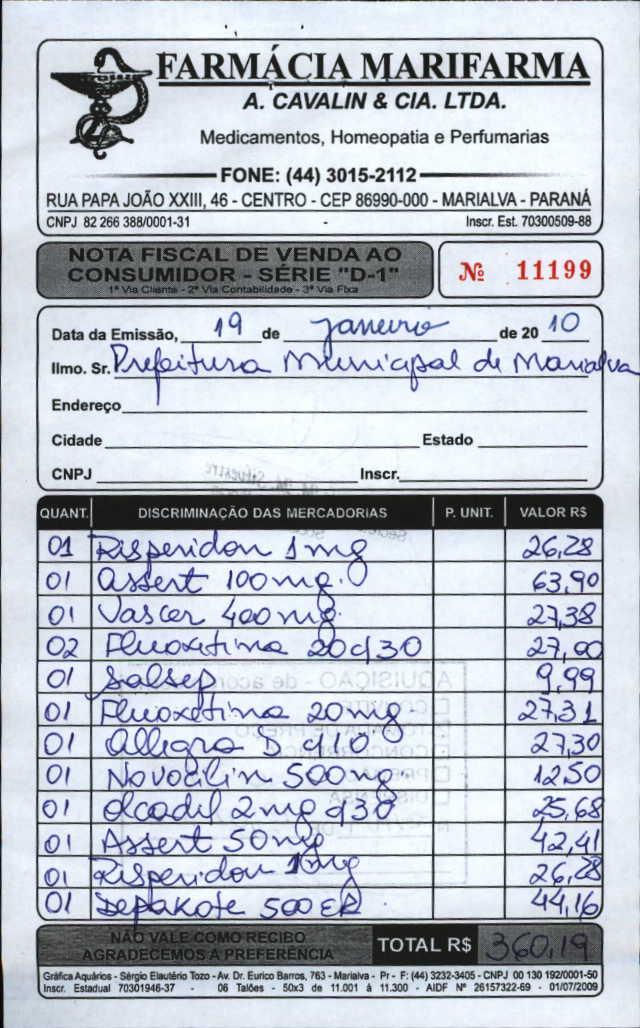 FARMÁCIA MARIFARMA
A. CAVALIN & CIA. LTDA.
Medicamentos, Homeopatia e Perfumarias
FONE: (44) 3015-2112
RUA PAPA JOÃO XXIII, 46 - CENTRO - CEP 86990-000 - MARIALVA - PARANÁ
CNPJ 82 266 388/0001-31 - Inscr. Est. 70300509-88
NOTA FISCAL DE VENDA AO
CONSUMIDOR - SÉRIE "D-1"
1ª Via Cliente - 2ª Via Contabilidade - 3ª Via Fixa
Nº 11199
Data da Emissão, 19 de janeiro de 20 10
Ilmo. Sr. Prefeitura Municipal de Marialva
Endereço
Cidade Estado
CNPJ Inscr.
QUANT. DISCRIMINAÇÃO DAS MERCADORIAS P. UNIT. VALOR R$
01 Risperidon 1mg 26,28
01 Assert 100mg. 63,90
01 Vascer 400mg. 27,38
02 Fluoxetina 20c/30 27,00
01 Salsep 9,99
01 Fluoxetina 20mg 27,31
01 Allegra D c/10 27,30
01 Novocilin 500mg. 12,50
01 Olcadil 2mg c/30 25,68
01 Assert 50mg 42,41
01 Risperidon 1mg 26,28
01 Depakote 500 ER 44,16
NÃO VALE COMO RECIBO
AGRADECEMOS A PREFERÊNCIA
TOTAL R$ 360,19
Gráfica Aquários - Sérgio Elautério Tozo - Av. Dr. Eurico Barros, 763 - Marialva - Pr - F: (44) 3232-3405 - CNPJ 00 130 192/0001-50
Inscr. Estadual 70301946-37 - 06 Talões - 50x3 de 11.001 à 11.300 - AIDF Nº 26157322-69 - 01/07/2009